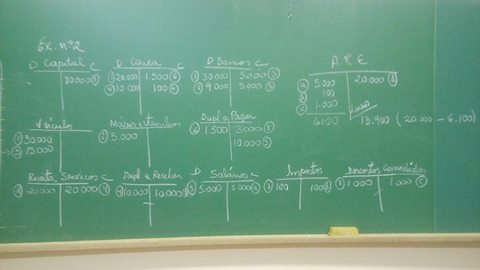 Ex. nº 2
D Capital C
80.000 ①
D Caixa C
① 20.000 1.500 ⑥
④ 10.000 100 ⑦
D Bancos C
① 30.000 5.000 ③
⑤ 9.000 5.000
A. R. E
ⓐ 5.000 20.000 ⓓ
ⓑ 100
ⓒ 1.000
6.100 Lucro 13.900 (20.000 - 6.100)
Veículos
① 30.000
15.000
Móveis e utensílios
② 3.000
Dupl a Pagar
⑥ 1.500 3.000 ②
10.000 ③
Receita Serviços C
20.000 20.000 ④
Dupl. a Receber
④ 10.000 10.000 ⑤
D Salários C
5.000 5.000
Impostos
⑦ 100 100
Descontos Concedidos
⑤ 1.000 1.000